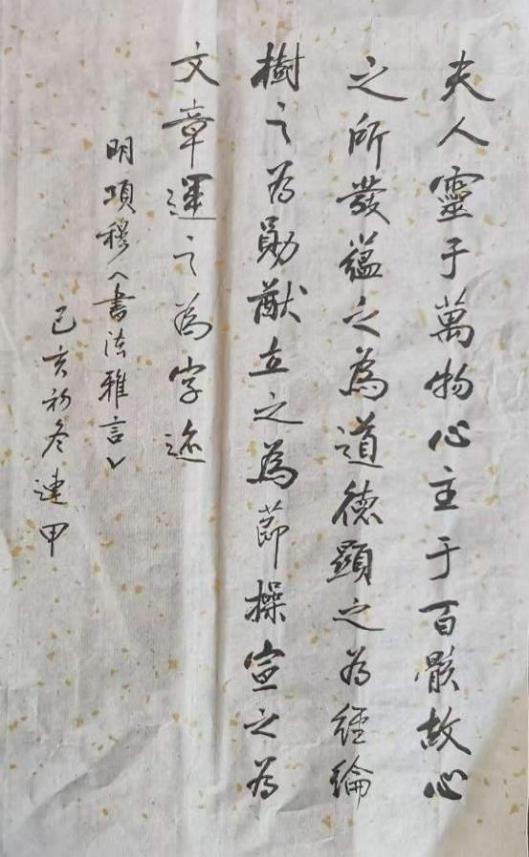 夫人靈于萬物心主于百骸故心
之所發蘊之為道德顯之為經綸
樹之為勛猷立之為節操宣之為
文章運之為字迹
明項穆《書法雅言》
己亥初冬建甲